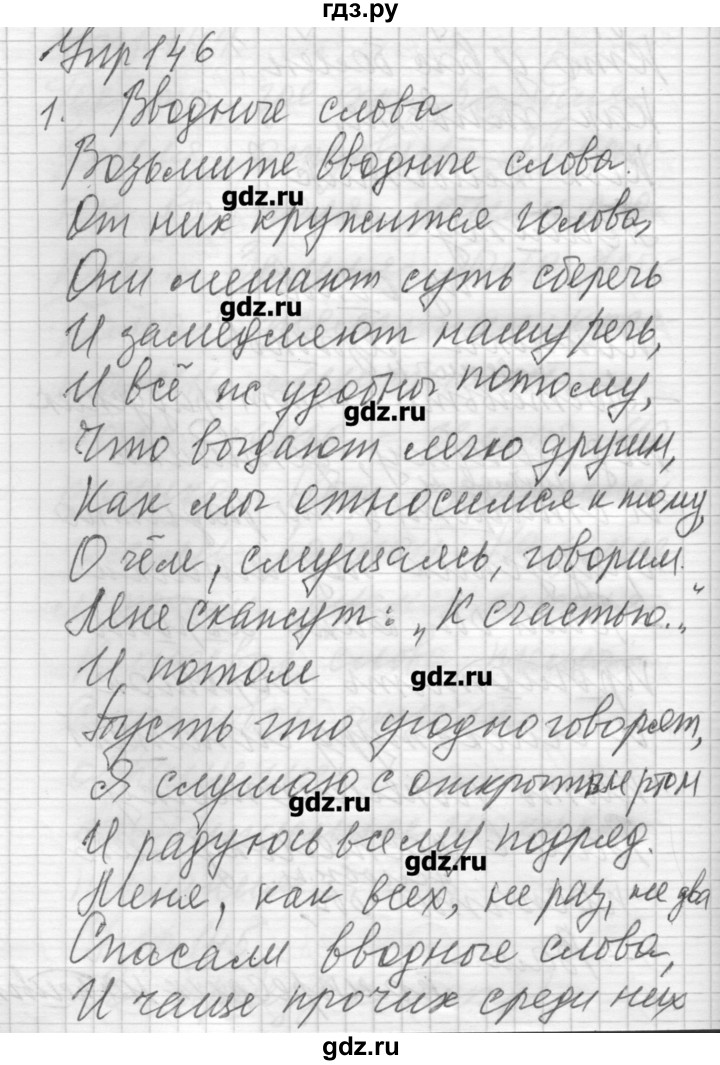 гдз.ру
Упр 146
1. Вводные слова
Возьмите вводные слова.
gdz.ru
От них кружится голова,
Они мешают суть сберечь
gdz.ru
И замедляют нашу речь,
И всё ж удобны потому,
gdz.ru
Что выдают легко другим,
Как мы относимся к тому,
О чём, смущаясь, говорим.
Мне скажут: „К счастью..."
И потом
gdz.ru
Пусть что угодно говорят,
Я слушаю с открытым ртом
gdz.ru
И радуюсь всему подряд.
gdz.ru
Меня, как всех, не раз, не два
Спасали вводные слова,
И чаще прочих среди них
gdz.ru